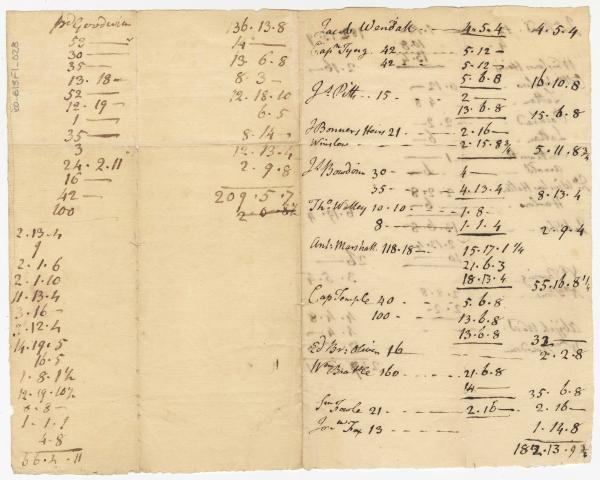 136 · 13 · 8
52 —
14 —
30 —
13 6 · 8
35 —
8 · 3 —
13 · 18 —
12 · 18 · 10
52 —
6 · 5
12 · 19 —
1 —
8 · 14 —
35 —
12 · 13 · 4
3
2 · 9 · 8
24 · 2 · 11
16 —
209 · 5 · 7
42 —
100
2 · 13 · 4
9
2 · 1 · 6
2 · 1 · 10
11 · 13 · 4
3 · 16 —
3 · 12 · 4
14 · 19 · 5
16 · 5
1 · 8 · 1½
12 · 19 · 10½
8 · 8 —
1 · 1 · 1
4 · 8
66 · 2 · 11
Jacob Wendall — 4 · 5 · 4 4 · 5 · 4
Capt Tyng 42 — 5 · 12 —
42 — 5 · 12 —
5 · 6 · 8 16 · 10 · 8
Js Pitts 15 2 —
13 · 6 · 8 15 · 6 · 8
J Bonners Heirs 21 - 2 · 16 —
Winslow 2 · 15 · 8¾ 5 · 11 · 8¾
Js Bowdoin 30 — 4 —
35 — 4 · 13 · 4 8 · 13 · 4
Tho Walley 10 · 10 1 · 8 ·
8 — 1 · 1 · 4 2 · 9 · 4
Ant Marshall 118 · 18 · 15 · 17 · 1¼
21 · 6 · 3
18 · 13 · 4 55 · 16 · 8¼
Cap Temple 40 5 · 6 · 8
100 13 · 6 · 8
13 · 6 · 8 32 —
Ed Br Oliver 16 — 2 · 2 · 8
Wm Brattle 160 21 · 6 · 8
14 — 35 · 6 · 8
Fowle 21 2 · 16 — 2 · 16 —
Fox 13 1 · 14 · 8
13 · 9